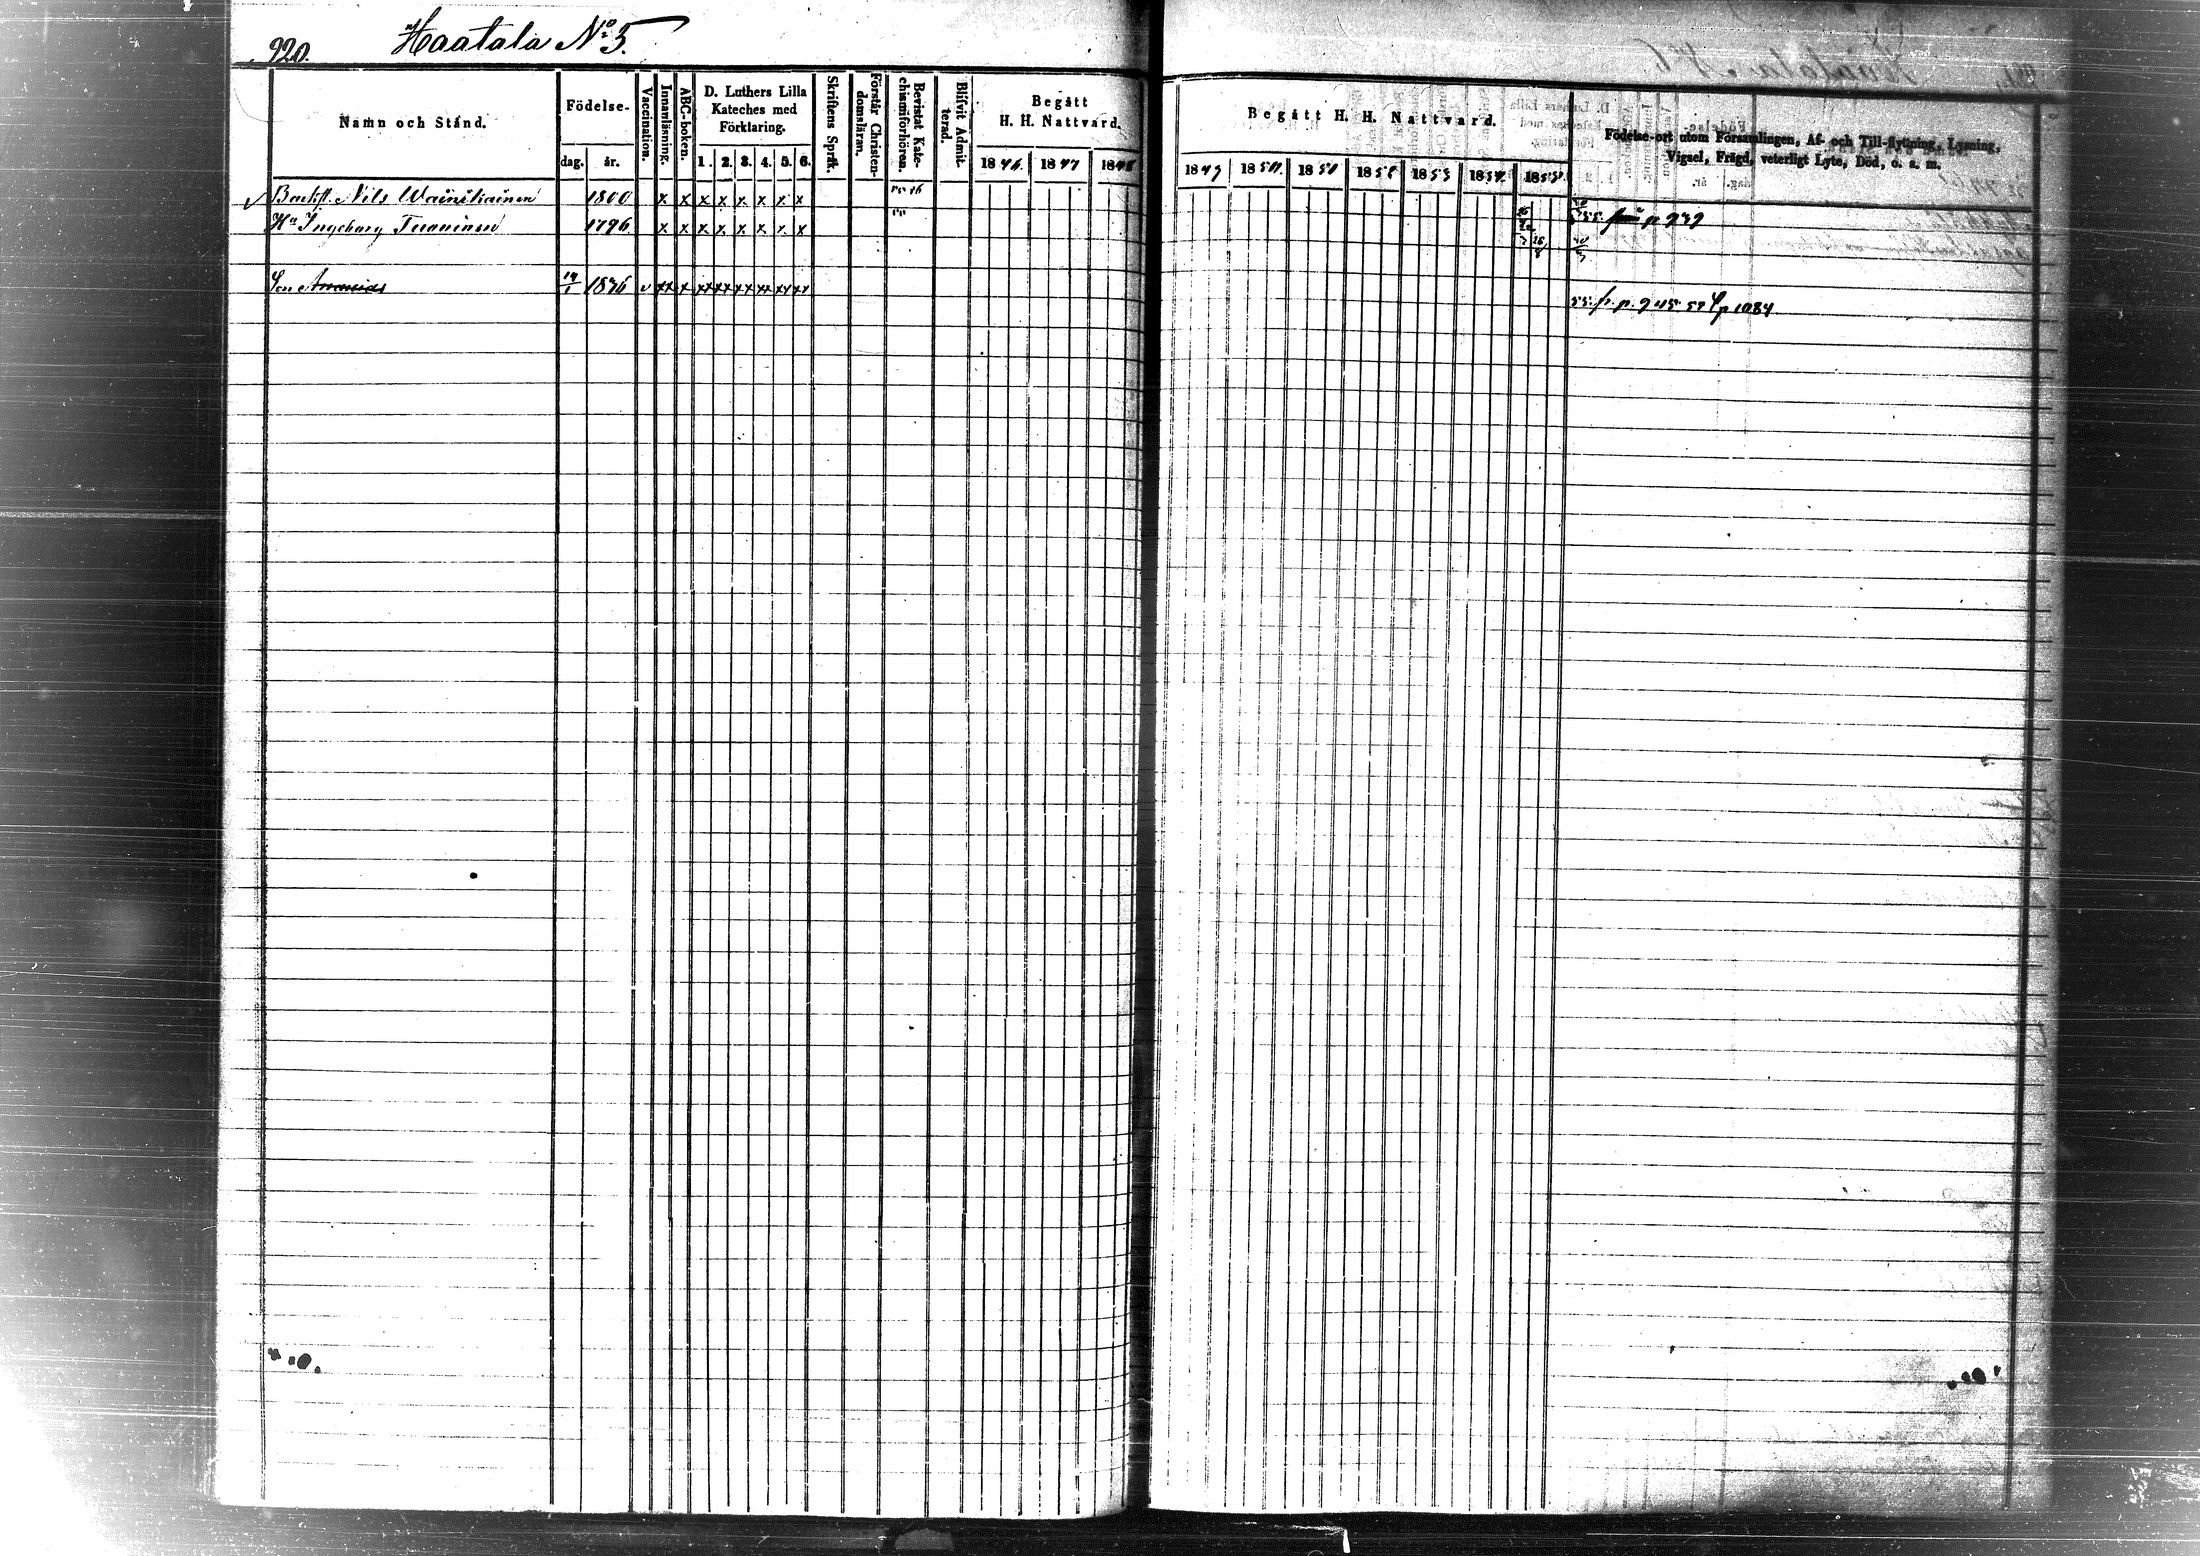 920.
Haatala No 5.
Namn och Stånd.
Födelse-
dag.
år.
Vaccination.
Innanläsning.
ABC-boken.
D. Luthers Lilla
Kateches med
Förklaring.
1. 2. 3. 4. 5. 6.
Skriftens Språk.
Förstår Christen-
domsläran.
Bevistat Kate-
chismiförhören.
Blifvit Admit-
terad.
Begått
H. H. Nattvard.
1846 1847 1848
Begått H. H. Nattvard.
1849 1850 1851 1852 1853 1854 1855
Födelse-ort utom Församlingen, Af- och Till-flytning, Lysning,
Vigsel, Frägd, veterligt Lyte, Död, o. s. m.
Backst. Nils Wainikainen 1800 x x x x x x x x
Ha Ingeborg 1796 x x x x x x x x
p 939
Son Ananias 19/1 1836 v xx x xx xx xx xx xx xx
55. fr. p. 945. p 1084